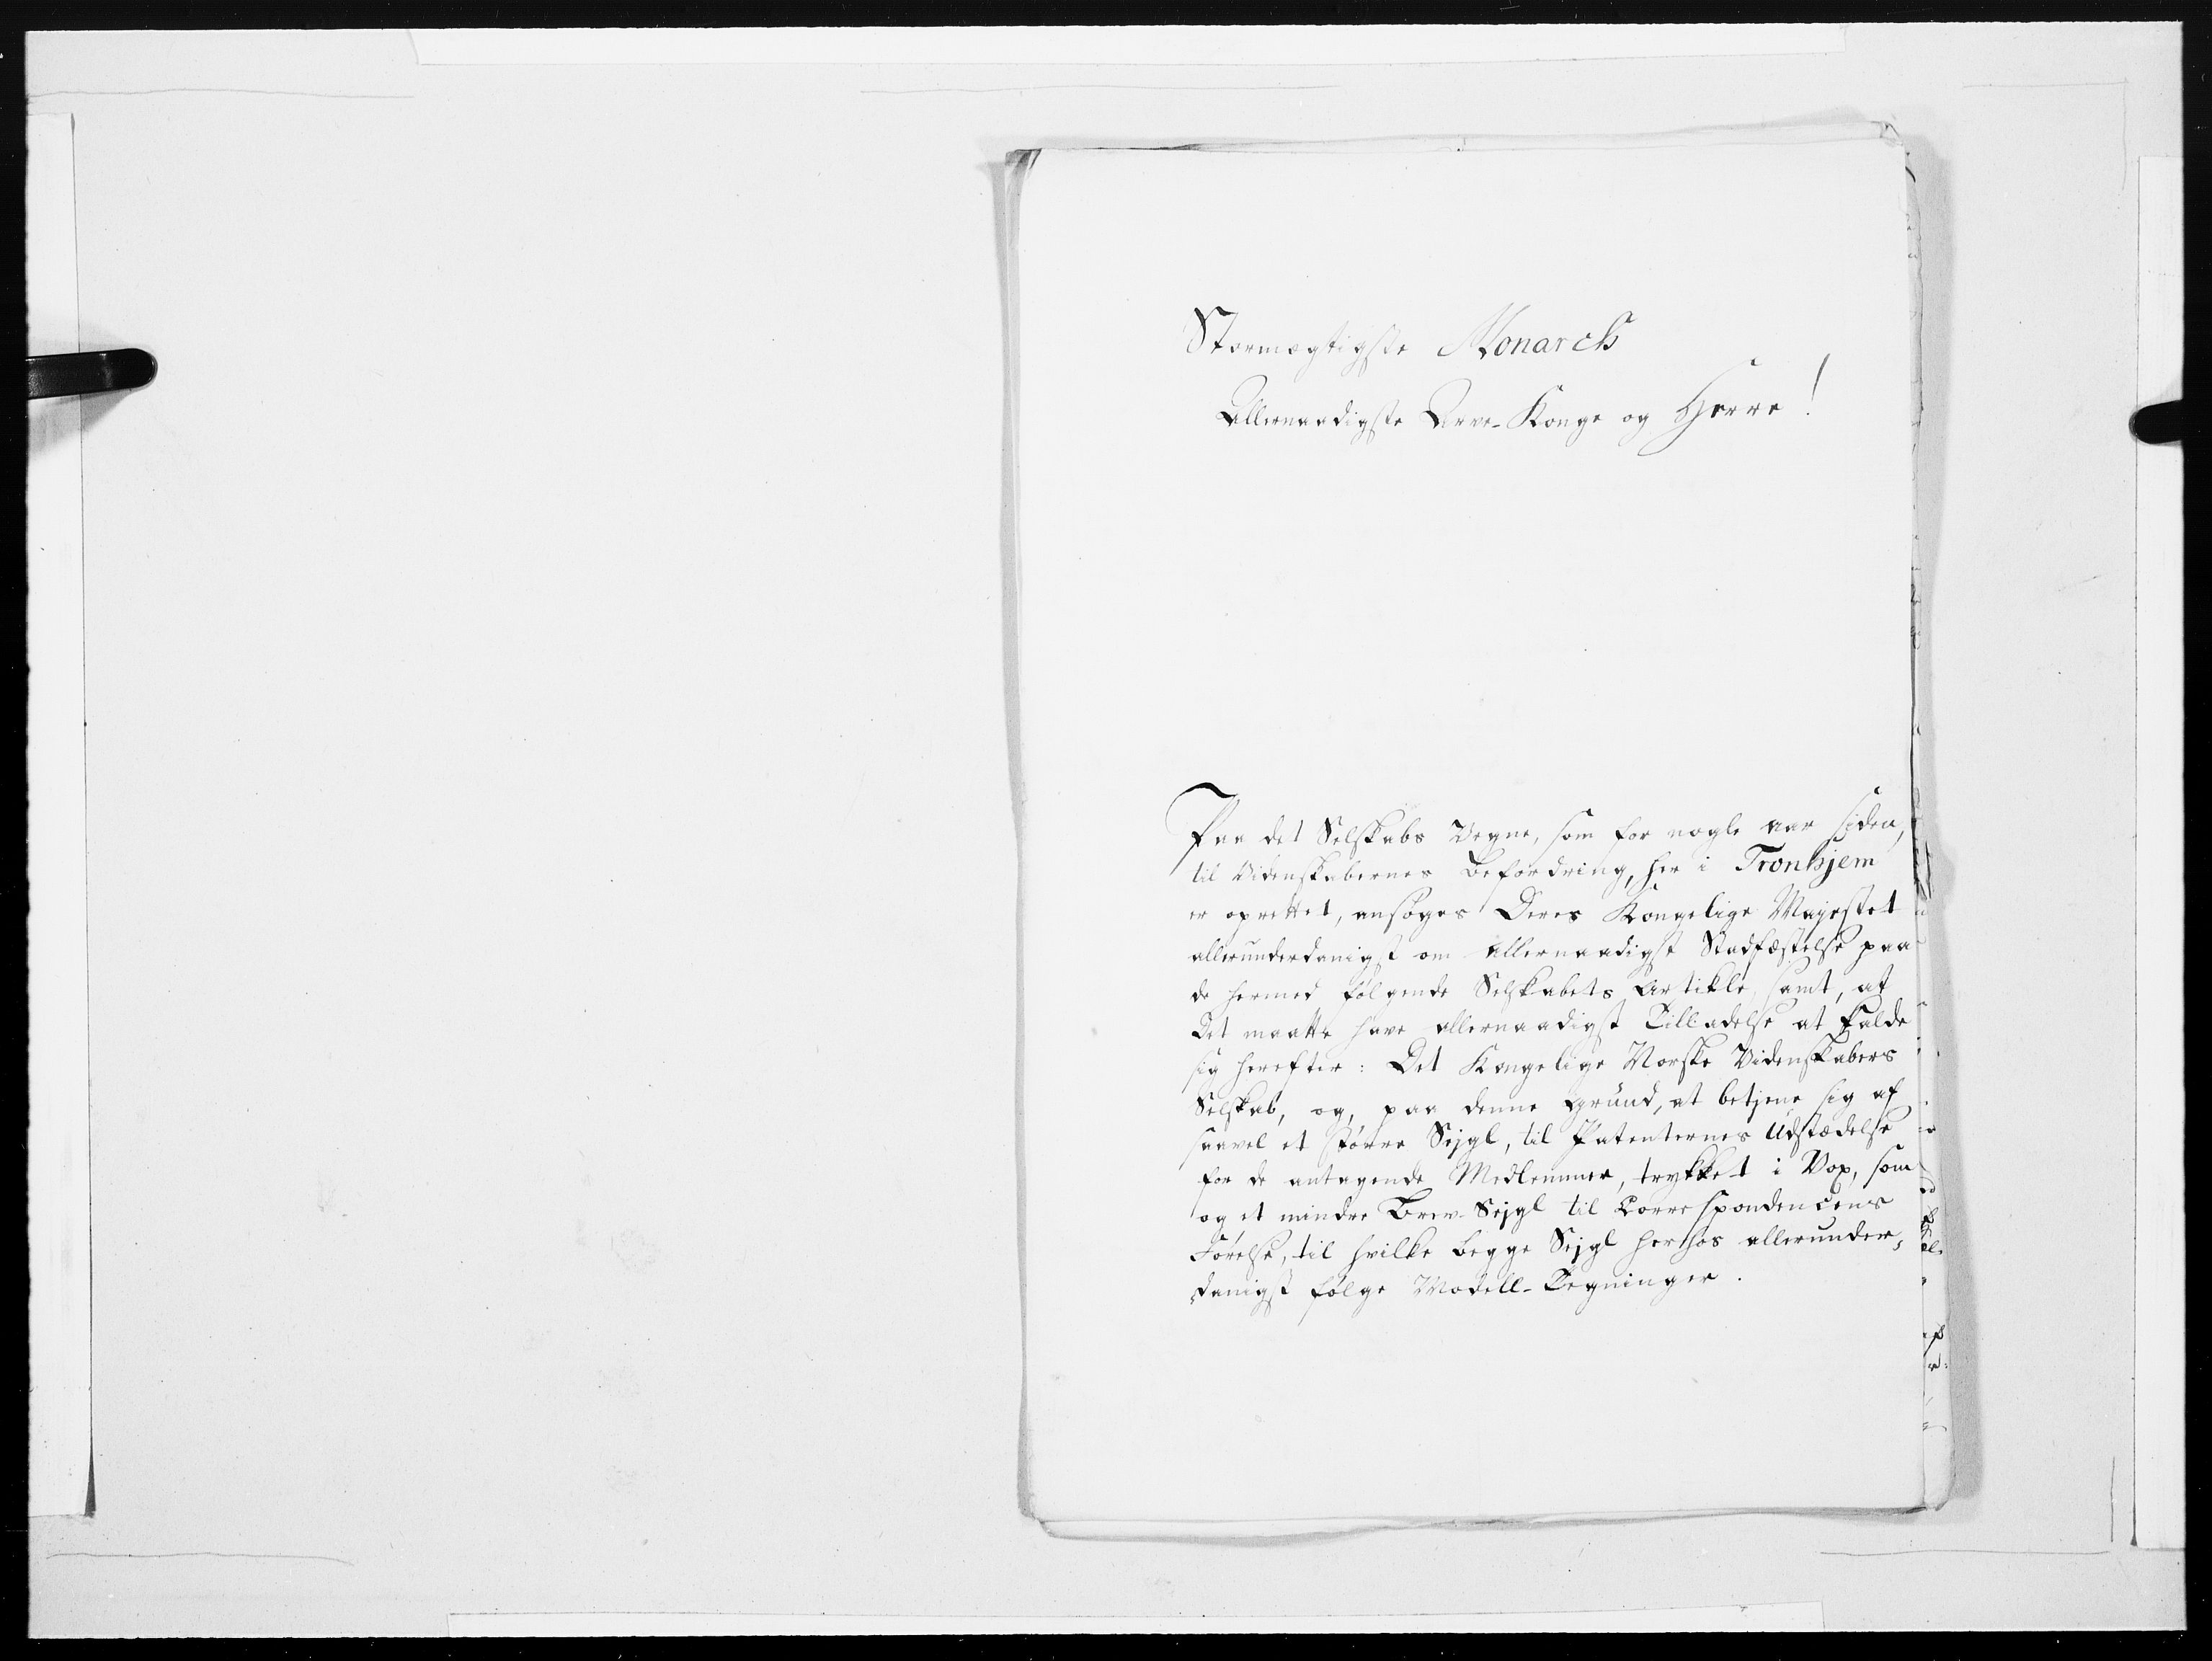 Stormægtigste Monarch
Allernaadigste Arve-Konge og Herre!
Paa det Selskabs Vegne, som for nogle aar siden,
til Videnskabernes Befordring, her i Tronhjem
er oprettet, ansøges Deres Kongelige Majestet
allerunderdanigst om allernaadigst Stadfæstelse paa
de hermed følgende Selskabets Artikle, samt, at
Det maatte have allernaadigst Tilladelse at kalde
sig herefter: Det Kongelige Norske Videnskabers
Selskab, og, paa denne Grund, at betjene sig af
saavel et større Sejgl, til Patenternes Udstædelse
for de antagende Medlemmer, trykket i Vox, som
og et mindre Brev-Sejgl til Correspondencens
Førelse, til hvilke begge Sejgl herhos allerunder,
danigst følge Modell-Tegninger.